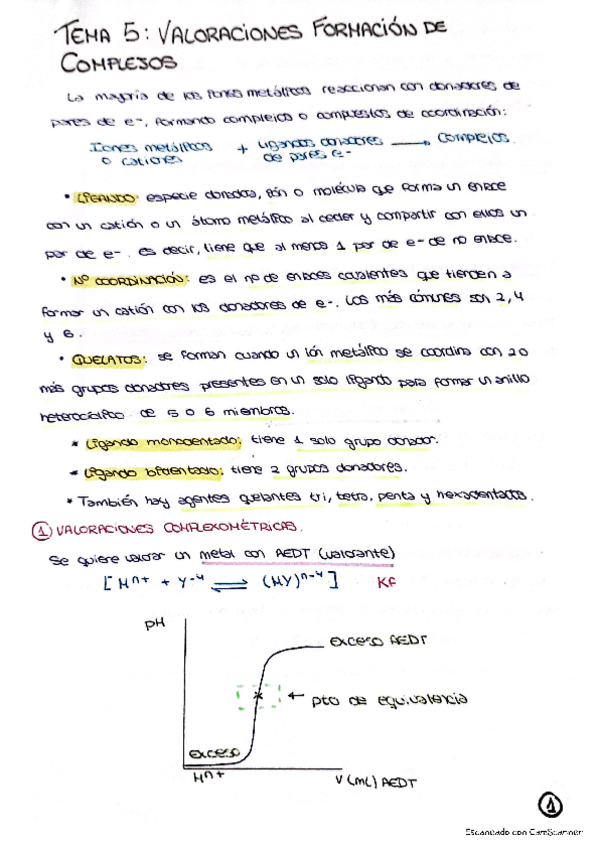 TEMA 5: VALORACIONES FORMACIÓN DE
COMPLEJOS
La mayoría de los iones metálicos reaccionan con donadores de
pares de e-, formando complejos o compuestos de coordinación:
Iones metálicos + Ligandos donadores → Complejos.
o cationes de pares e-
• LIGANDO: especie donadora, ión o molécula que forma un enlace
con un catión o un átomo metálico al ceder y compartir con ellos un
par de e-. es decir, tiene que al menos 1 par de e- de no enlace.
• Nº COORDINACIÓN: es el nº de enlaces covalentes que tienden a
formar un catión con los donadores de e-. Los más cómunes son 2, 4
y 6.
• QUELATOS: se forman cuando un ión metálico se coordina con 2 o
más grupos donadores presentes en un solo ligando para formar un anillo
heterocíclico de 5 o 6 miembros.
* Ligando monodentado: tiene 1 solo grupo donador.
* Ligando bidentado: tiene 2 grupos donadores.
* También hay agentes quelantes tri, tetra, penta y hexadentados.
① VALORACIONES COMPLEXOMÉTRICAS.
Se quiere valorar un metal con AEDT (valorante)
[Mⁿ⁺ + Y⁻⁴ ⇌ (MY)ⁿ⁻⁴] Kf
pH
exceso AEDT
← pto de equivalencia
exceso
Mⁿ⁺
V (mL) AEDT
①
Escaneado con CamScanner